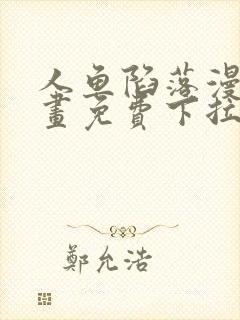 人鱼陷落漫
畫免費下拉
鄭允浩